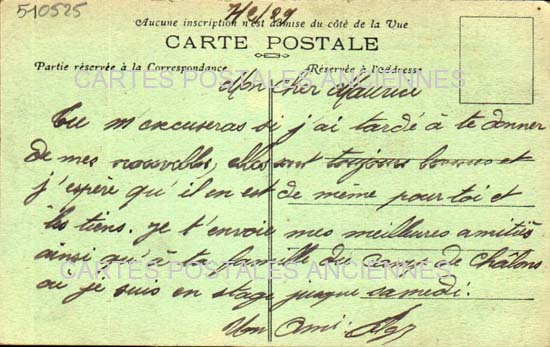 510525
7/2/29
Aucune inscription n'est admise du côté de la Vue
CARTE POSTALE
Partie réservée à la Correspondance
Réservée à l'Adresse
CARTES POSTALES ANCIENNES
Mon cher Maurice
Tu m'excuseras si j'ai tardé à te donner
de mes nouvelles, elles sont toujours bonnes et
j'espère qu'il en est de même pour toi et
les tiens. je t'envoie mes meilleures amitiés
ainsi qu'à ta famille du camp de Châlons
CARTES POSTALES ANCIENNES
ou je suis en stage jusque samedi.
Un Ami